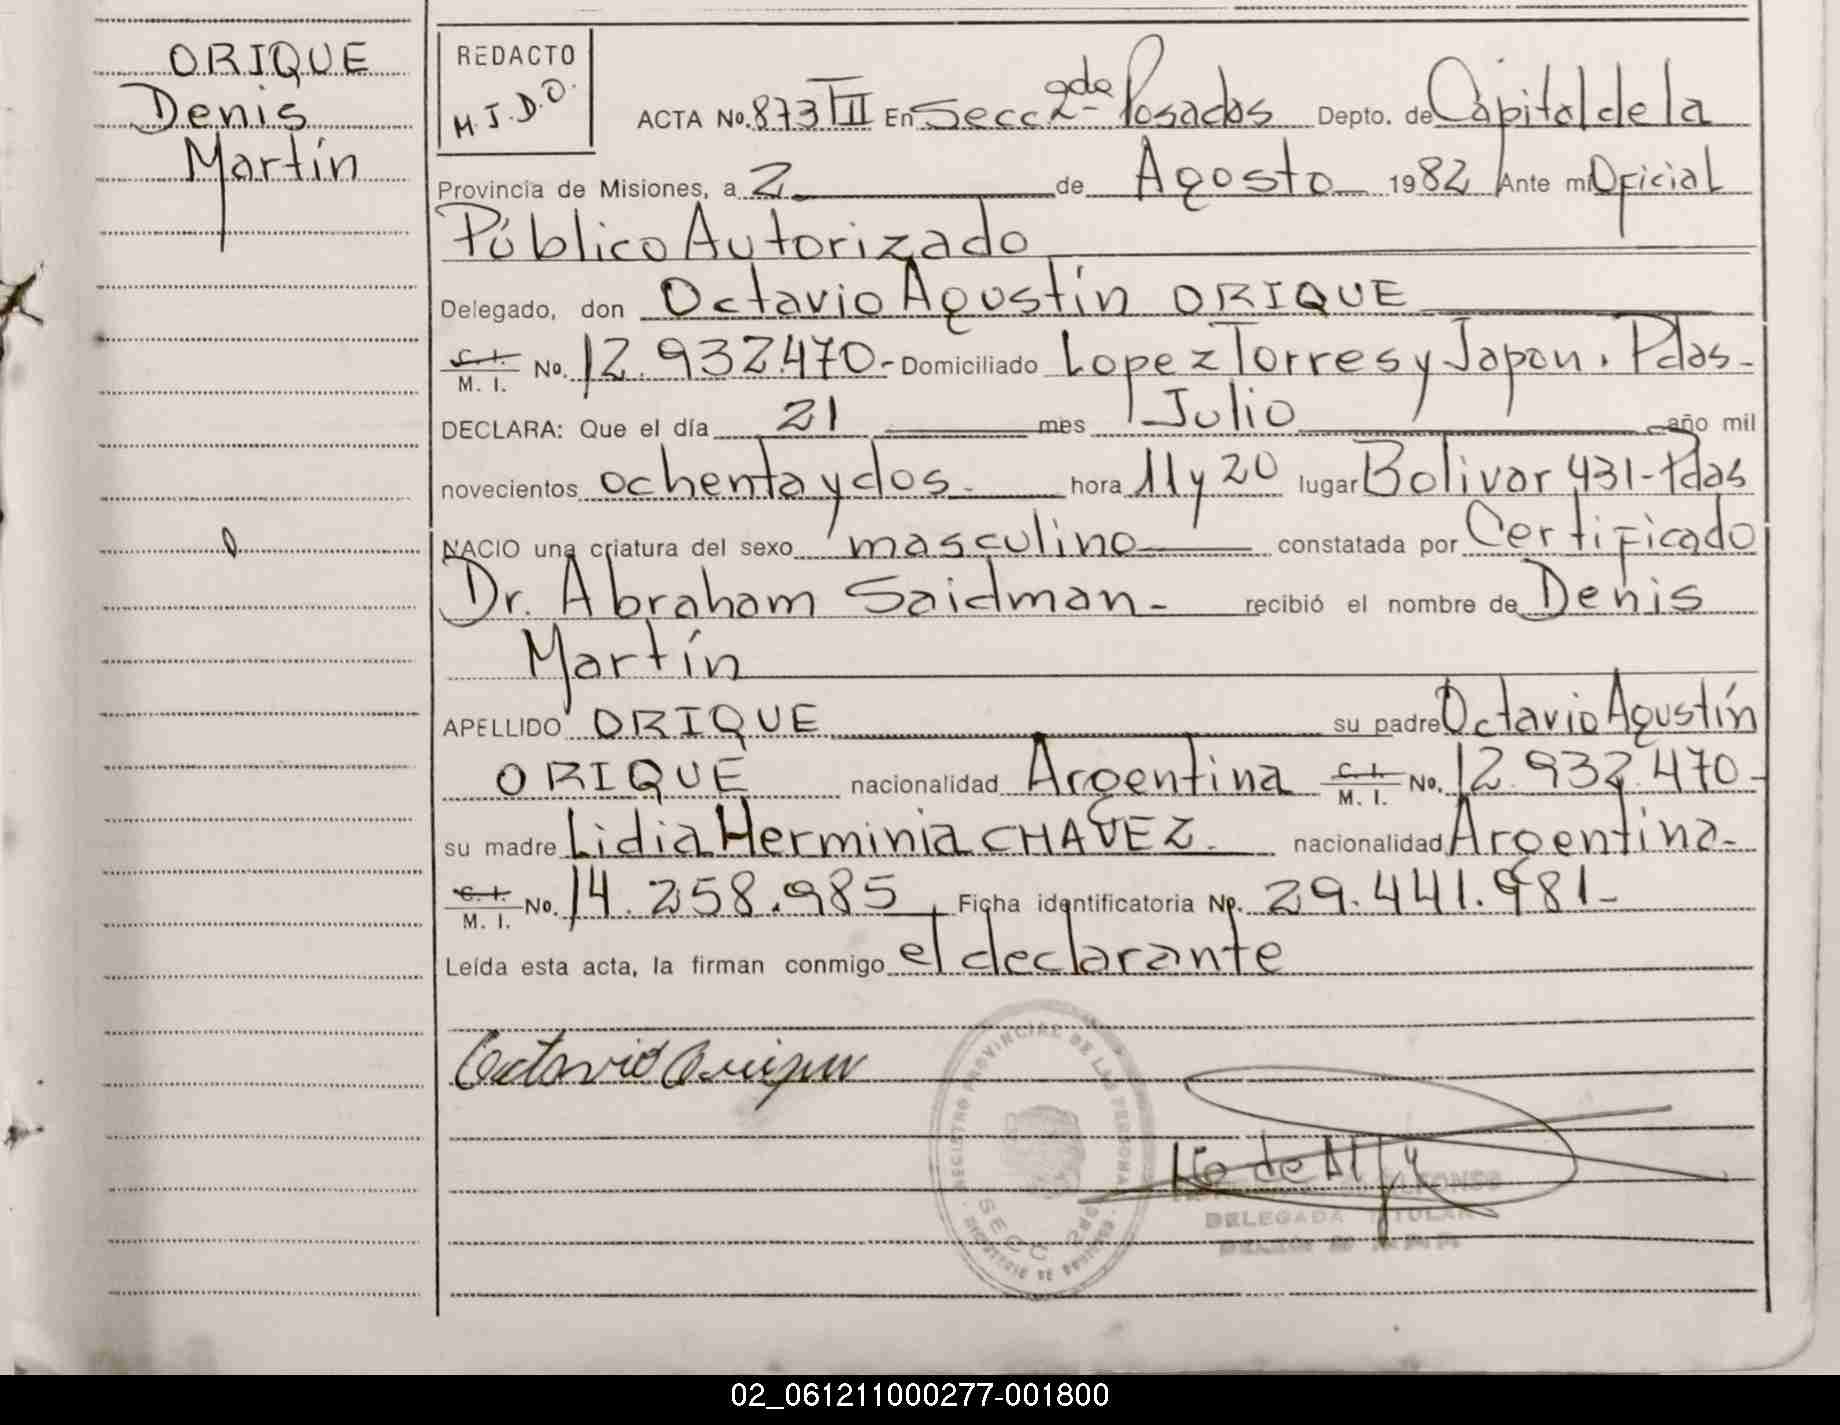 ORIQUE
Denis
Martín
REDACTO
M.J.D.O.
ACTA No. 873 TII En Secc 2da Posadas Depto. de Capital de la
Provincia de Misiones, a 2 de Agosto 1982 Ante mi Oficial
Público Autorizado
Delegado, don Octavio Agustín ORIQUE
C. I.
M. I. No. 12.932.470- Domiciliado Lopez Torres y Japon. Pdas-
DECLARA: Que el día 21 mes Julio año mil
novecientos ochenta y dos- hora 11 y 20 lugar Bolivar 431-Pdas
NACIO una criatura del sexo masculino constatada por Certificado
Dr. Abraham Saidman- recibió el nombre de Denis
Martín
APELLIDO ORIQUE su padre Octavio Agustín
ORIQUE nacionalidad Argentina C. I. M. I. No. 12.932.470-
su madre Lidia Herminia CHAVEZ. nacionalidad Argentina-
C. I.
M. I. No. 14.258.985 Ficha identificatoria No. 29.441.981-
Leída esta acta, la firman conmigo el declarante
Octavio Orique
REGISTRO PROVINCIAL DE LAS PERSONAS
SECC
DELEGADA TITULAR
02_061211000277-001800